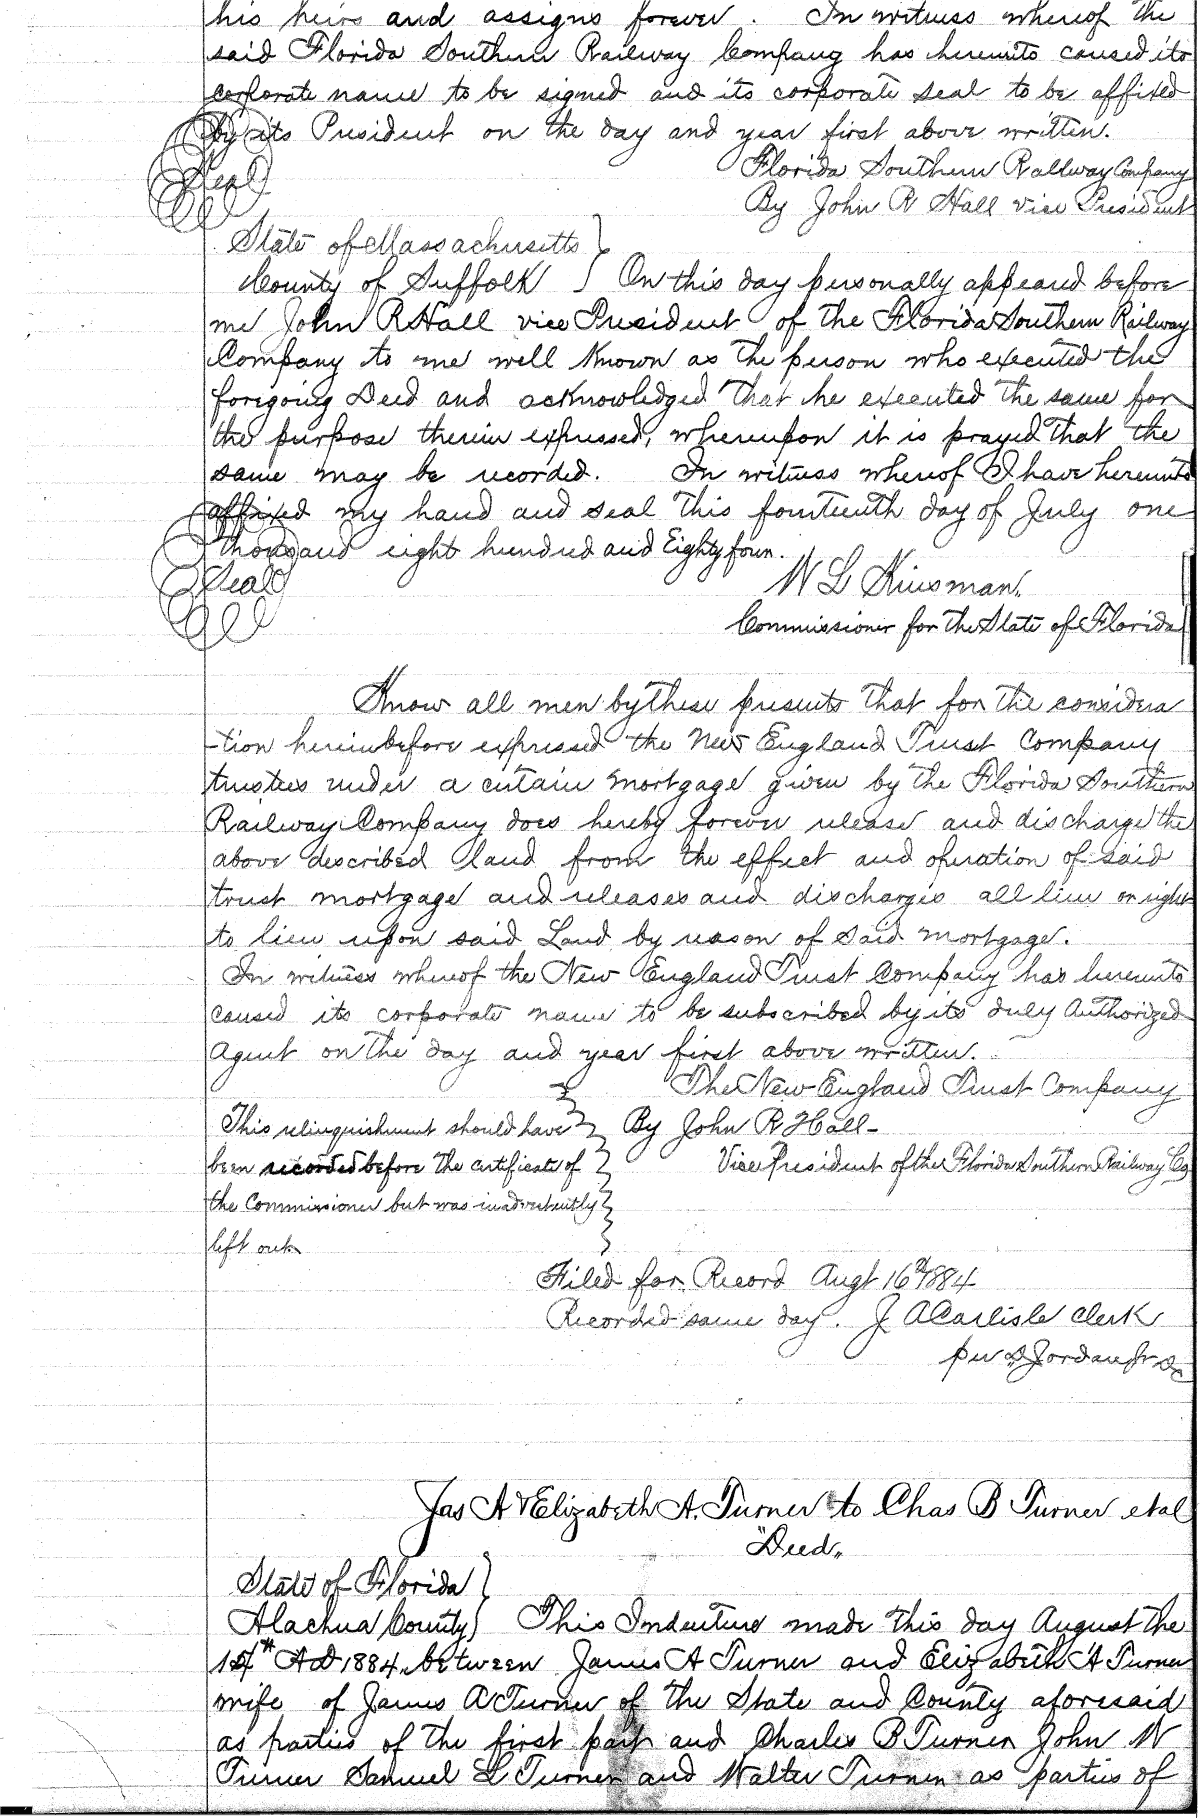 his heirs and assigns forever. In witness whereof the
said Florida Southern Railway Company has hereunto caused its
corporate name to be signed and its corporate seal to be affixed
by its President on the day and year first above written.
Florida Southern Railway Company
Seal
By John R Hall vice President
State of Massachusetts }
County of Suffolk } On this day personally appeared before
me John R Hall vice President of the Florida Southern Railway
Company to me well known as the person who executed the
foregoing Deed and acknowledged that he executed the same for
the purpose therein expressed, whereupon it is prayed that the
same may be recorded. In witness whereof I have hereunto
affixed my hand and seal this fourteenth day of July one
thousand eight hundred and Eighty four.
Seal
W L Kinsman.
Commissioner for the State of Florida
Know all men by these presents that for the considera
-tion hereinbefore expressed the New England Trust Company
trustees under a certain mortgage given by the Florida Southern
Railway Company does hereby forever release and discharge the
above described land from the effect and operation of said
trust mortgage and releases and discharges all lien or right
to lien upon said Land by reason of said mortgage.
In witness whereof the New England Trust Company has hereunto
caused its corporate name to be subscribed by its duly Authorized
Agent on the day and year first above written.
The New England Trust Company
This relinquishment should have } By John R Hall-
been recorded before the certificate of } Vice President of the Florida Southern Railway Co
the Commissioner but was inadvertently }
left out
Filed for Record Augt 16th 1884
Recorded same day. J A Carlisle Clerk
per Jordan Jr
Jas A & Elizabeth A. Turner to Chas B Turner et al
"Deed"
State of Florida }
Alachua County } This Indenture made this day August the
A D 1884 between James A Turner and Elizabeth A Turner
wife of James A Turner of the State and County aforesaid
as parties of the first part and Charles B Turner John W
Turner Samuel L Turner and Walter Turner as parties of